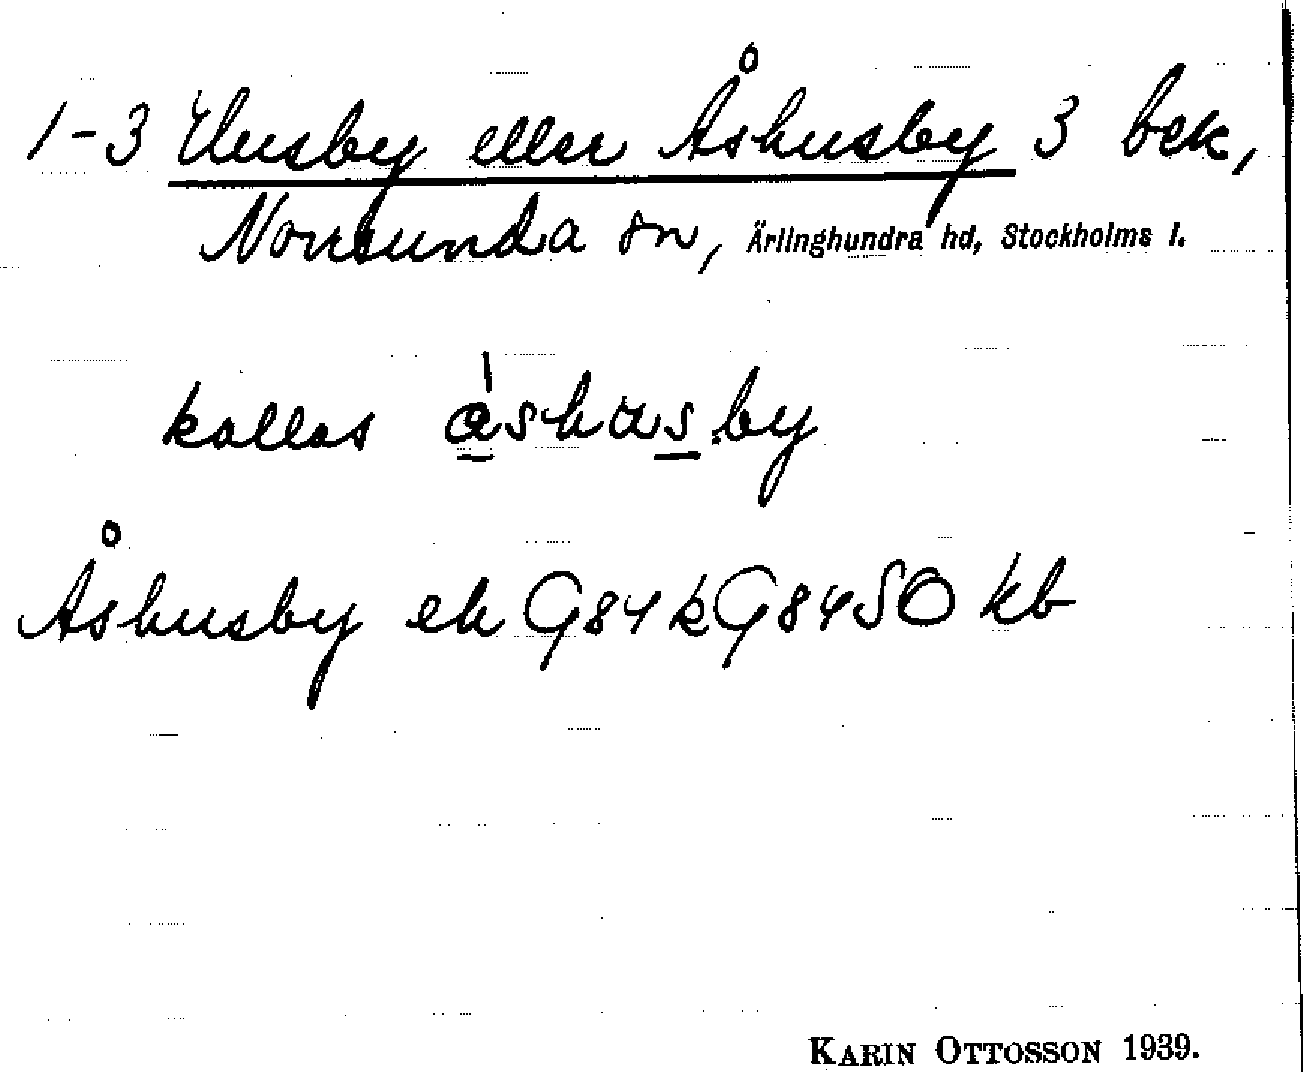 1-3 Husby eller Åshusby 3 bek,
Norrsunda sn, Ärlinghundra hd, Stockholms l.
kallas åshusby
Åshusby ek G84 k G84 SO kb
KARIN OTTOSSON 1939.